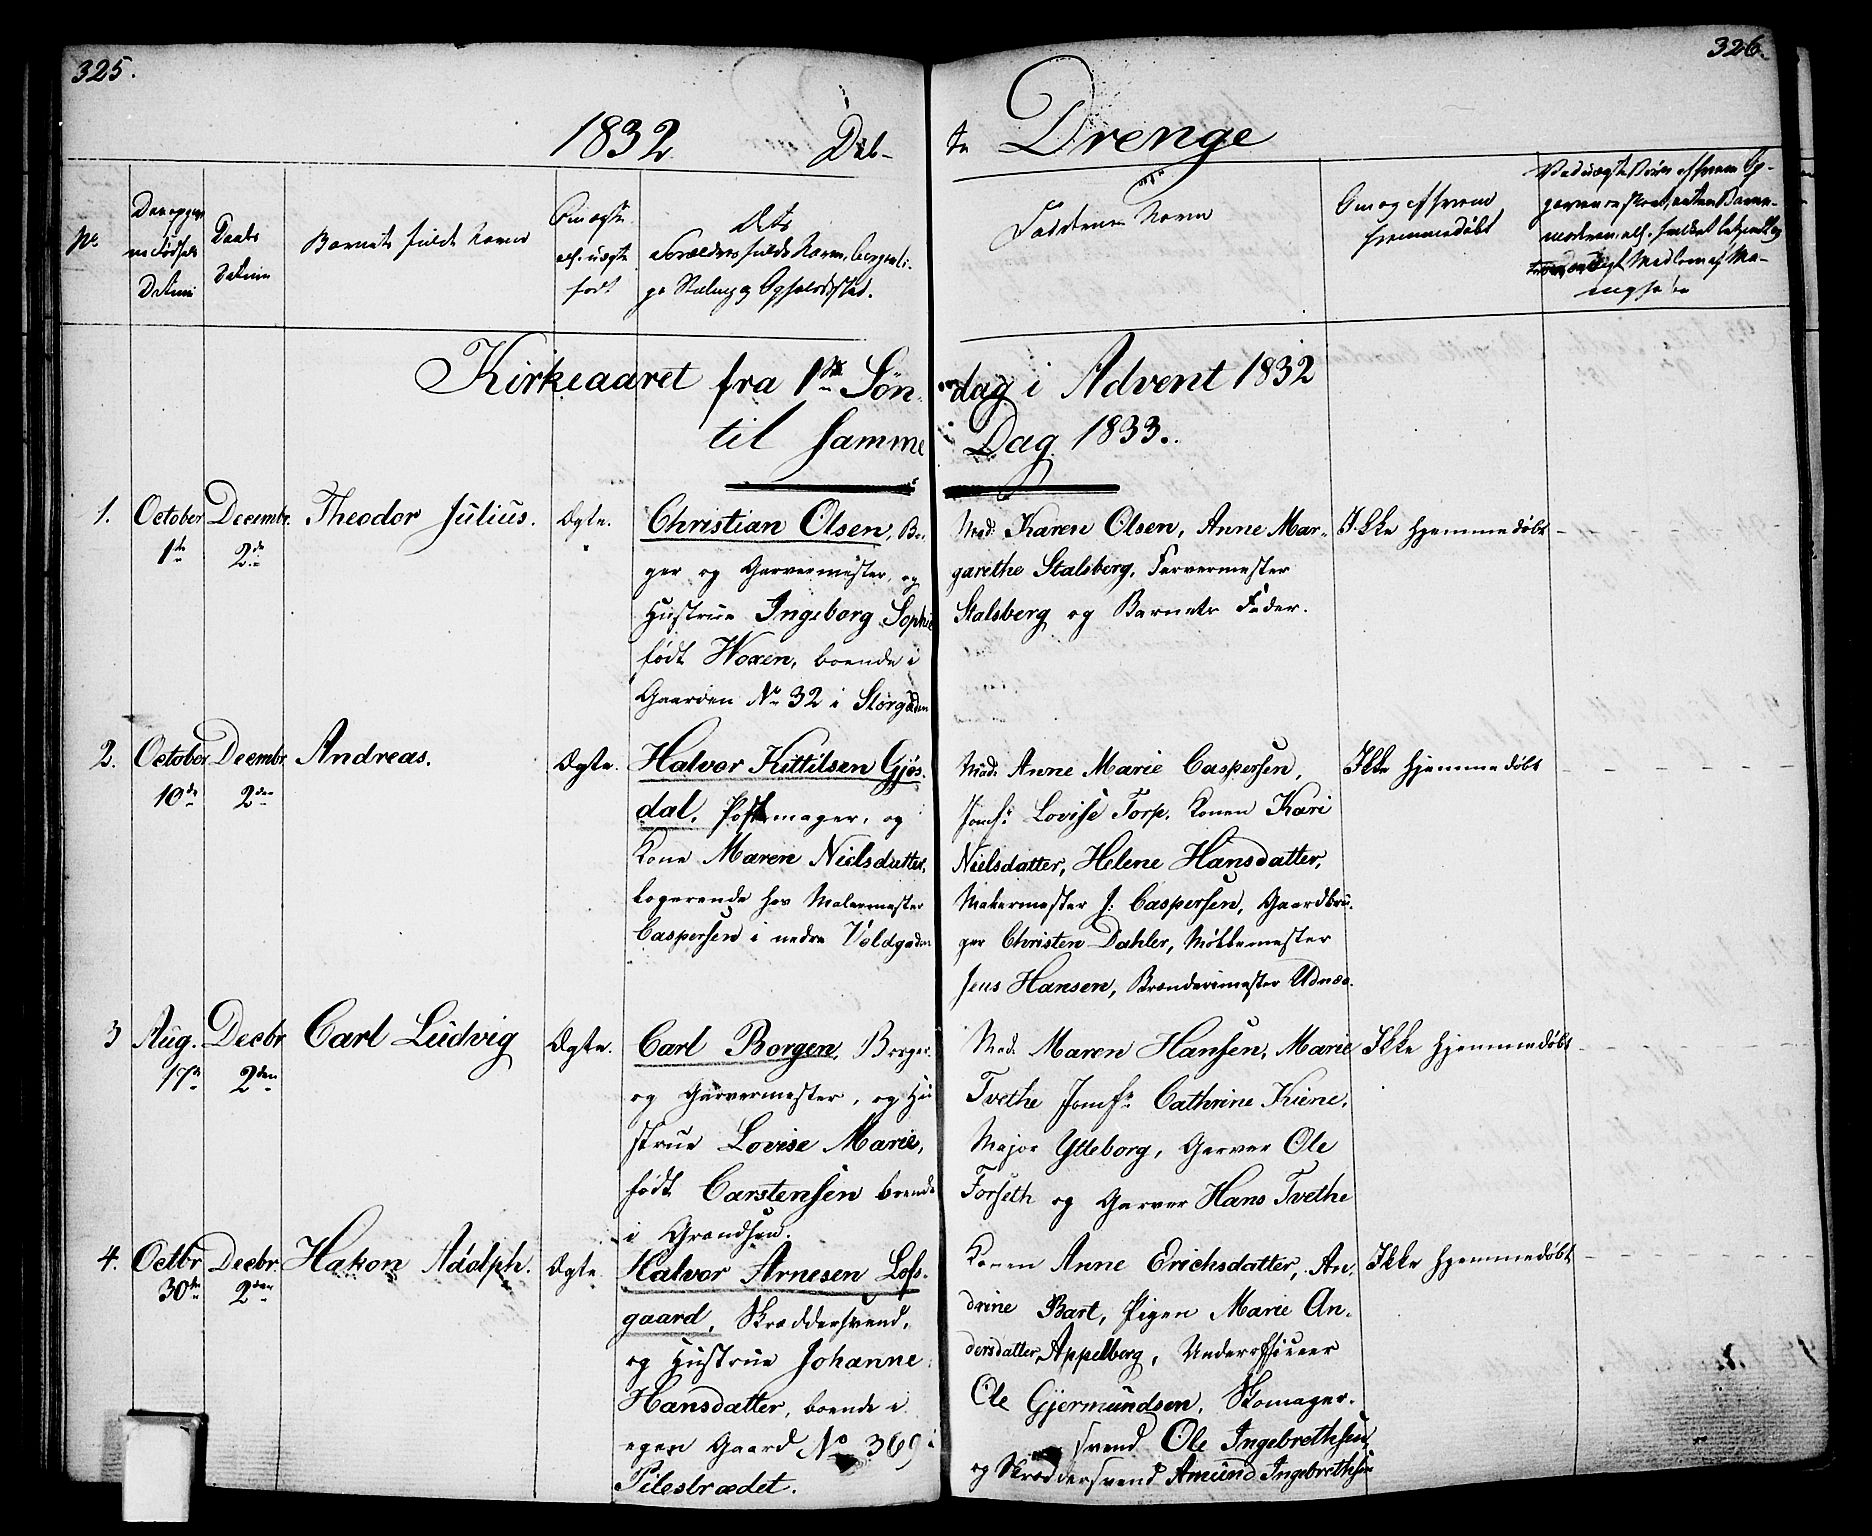 325.
326.
1832
Døb-
te Drenge
No
Den opgivne Fødsels Datum
Daabs Datum
Barnets fulde Navn
Om ægte ell. uægte født
Dets Forældres fulde Navn, borgerlige Stilling og Opholdssted.
Faddernes Navn
Om og af hvem hjemmedøbt
Kirkeaaret fra 1ste Søn-
dag i Advent 1832
til samme
Dag 1833.
1.
October
1ste
Decembr.
2den
Theodor Julius.
Ægte.
Christian Olsen, Bor-
ger og Garvermester, og
Hustrue Ingeborg Sophie
født Woxen, boende i
Gaarden No 32 i Storgaden
Mad. Karen Olsen, Anne Mar-
garethe Stalsberg, Farvermester
Stalsberg og Barnets Fader.
Ikke hjemmedøbt
2.
October
10de
Decembr.
2den
Andreas.
Ægte.
Halvor Kittilsen Gjøs-
dal, Postmager, og
Kone Maren Nielsdatter,
logerende hos Malermester
Caspersen i nedre Voldgaden
Mad. Anne Marie Caspersen,
Jomfr. Lovise Torp, Konen Kari
Nielsdatter, Helene Hansdatter,
Malermester J: Caspersen, Gaardbru-
ger Christen Dahler, Møllemester
Jens Hansen, Brænderimester Udnæs.
Ikke hjemmedøbt
3
Aug.
17de
Decbr
2den
Carl Ludvig
Ægte.
Carl Borgen, Borger
og Garvermester, og Hu-
strue Lovise Marie,
født Carstensen boende
i Grændsen.
Mad. Maren Hansen, Marie
Tvethe Jomfr. Cathrine Kiene,
Major Ytteborg, Garver Ole
Forseth og Garver Hans Tvethe
Ikke hjemmedøbt
4.
Octbr
30te
Decbr.
2den
Hakon Adolph.
Ægte.
Halvor Arnesen Lofs-
gaard, Skræddersvend,
og Hustrue Johanne
Hansdatter, boende i
egen Gaard No 369 i
Pilestrædet.
Konen Anne Erichsdatter, An-
drine Bart, Pigen Marie An-
dersdatter Appelberg, Underofficeer
Ole Gjermundsen, Skomager-
svend Ole Ingebrethsen
og Skræddersvend Amund Ingebrethsen
Ikke hjemmedøbt